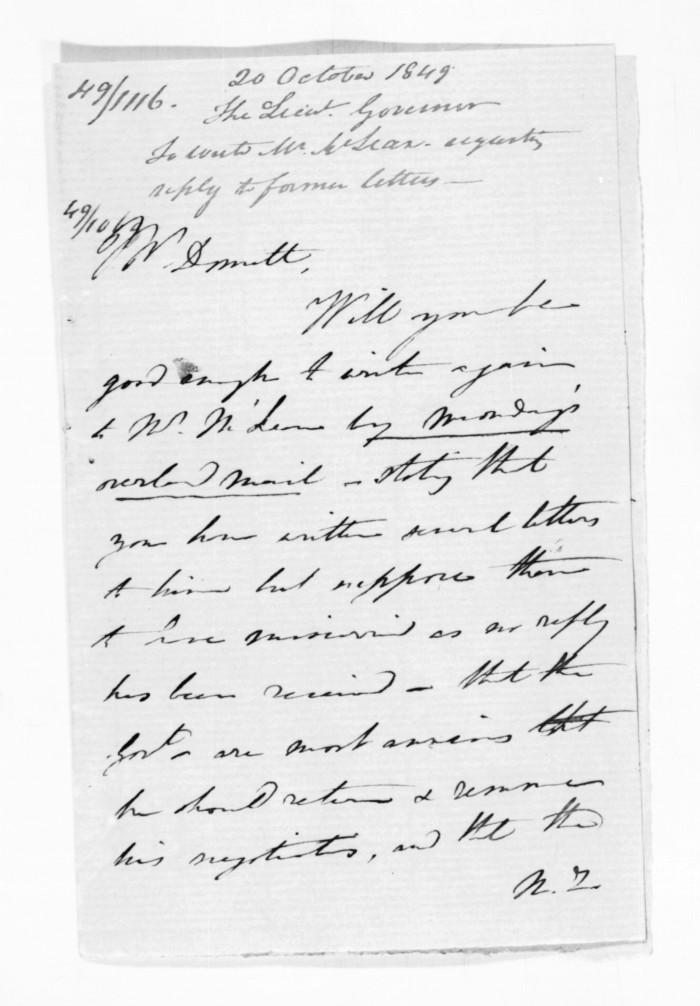 49/1116.
20 October 1849
The Lieut. Governor
To write Mr. McLean - requesting
reply to former letters —
49/1069
Mr Domett,
Will you be
good enough to write again
to Mr. McLean by Monday's
overland mail - stating that
you have written several letters
to him but suppose them
to have miscarried as no reply
has been received - that the
Govt. are most anxious that
he should return & resume
his negotiations, and that the
N. Z.